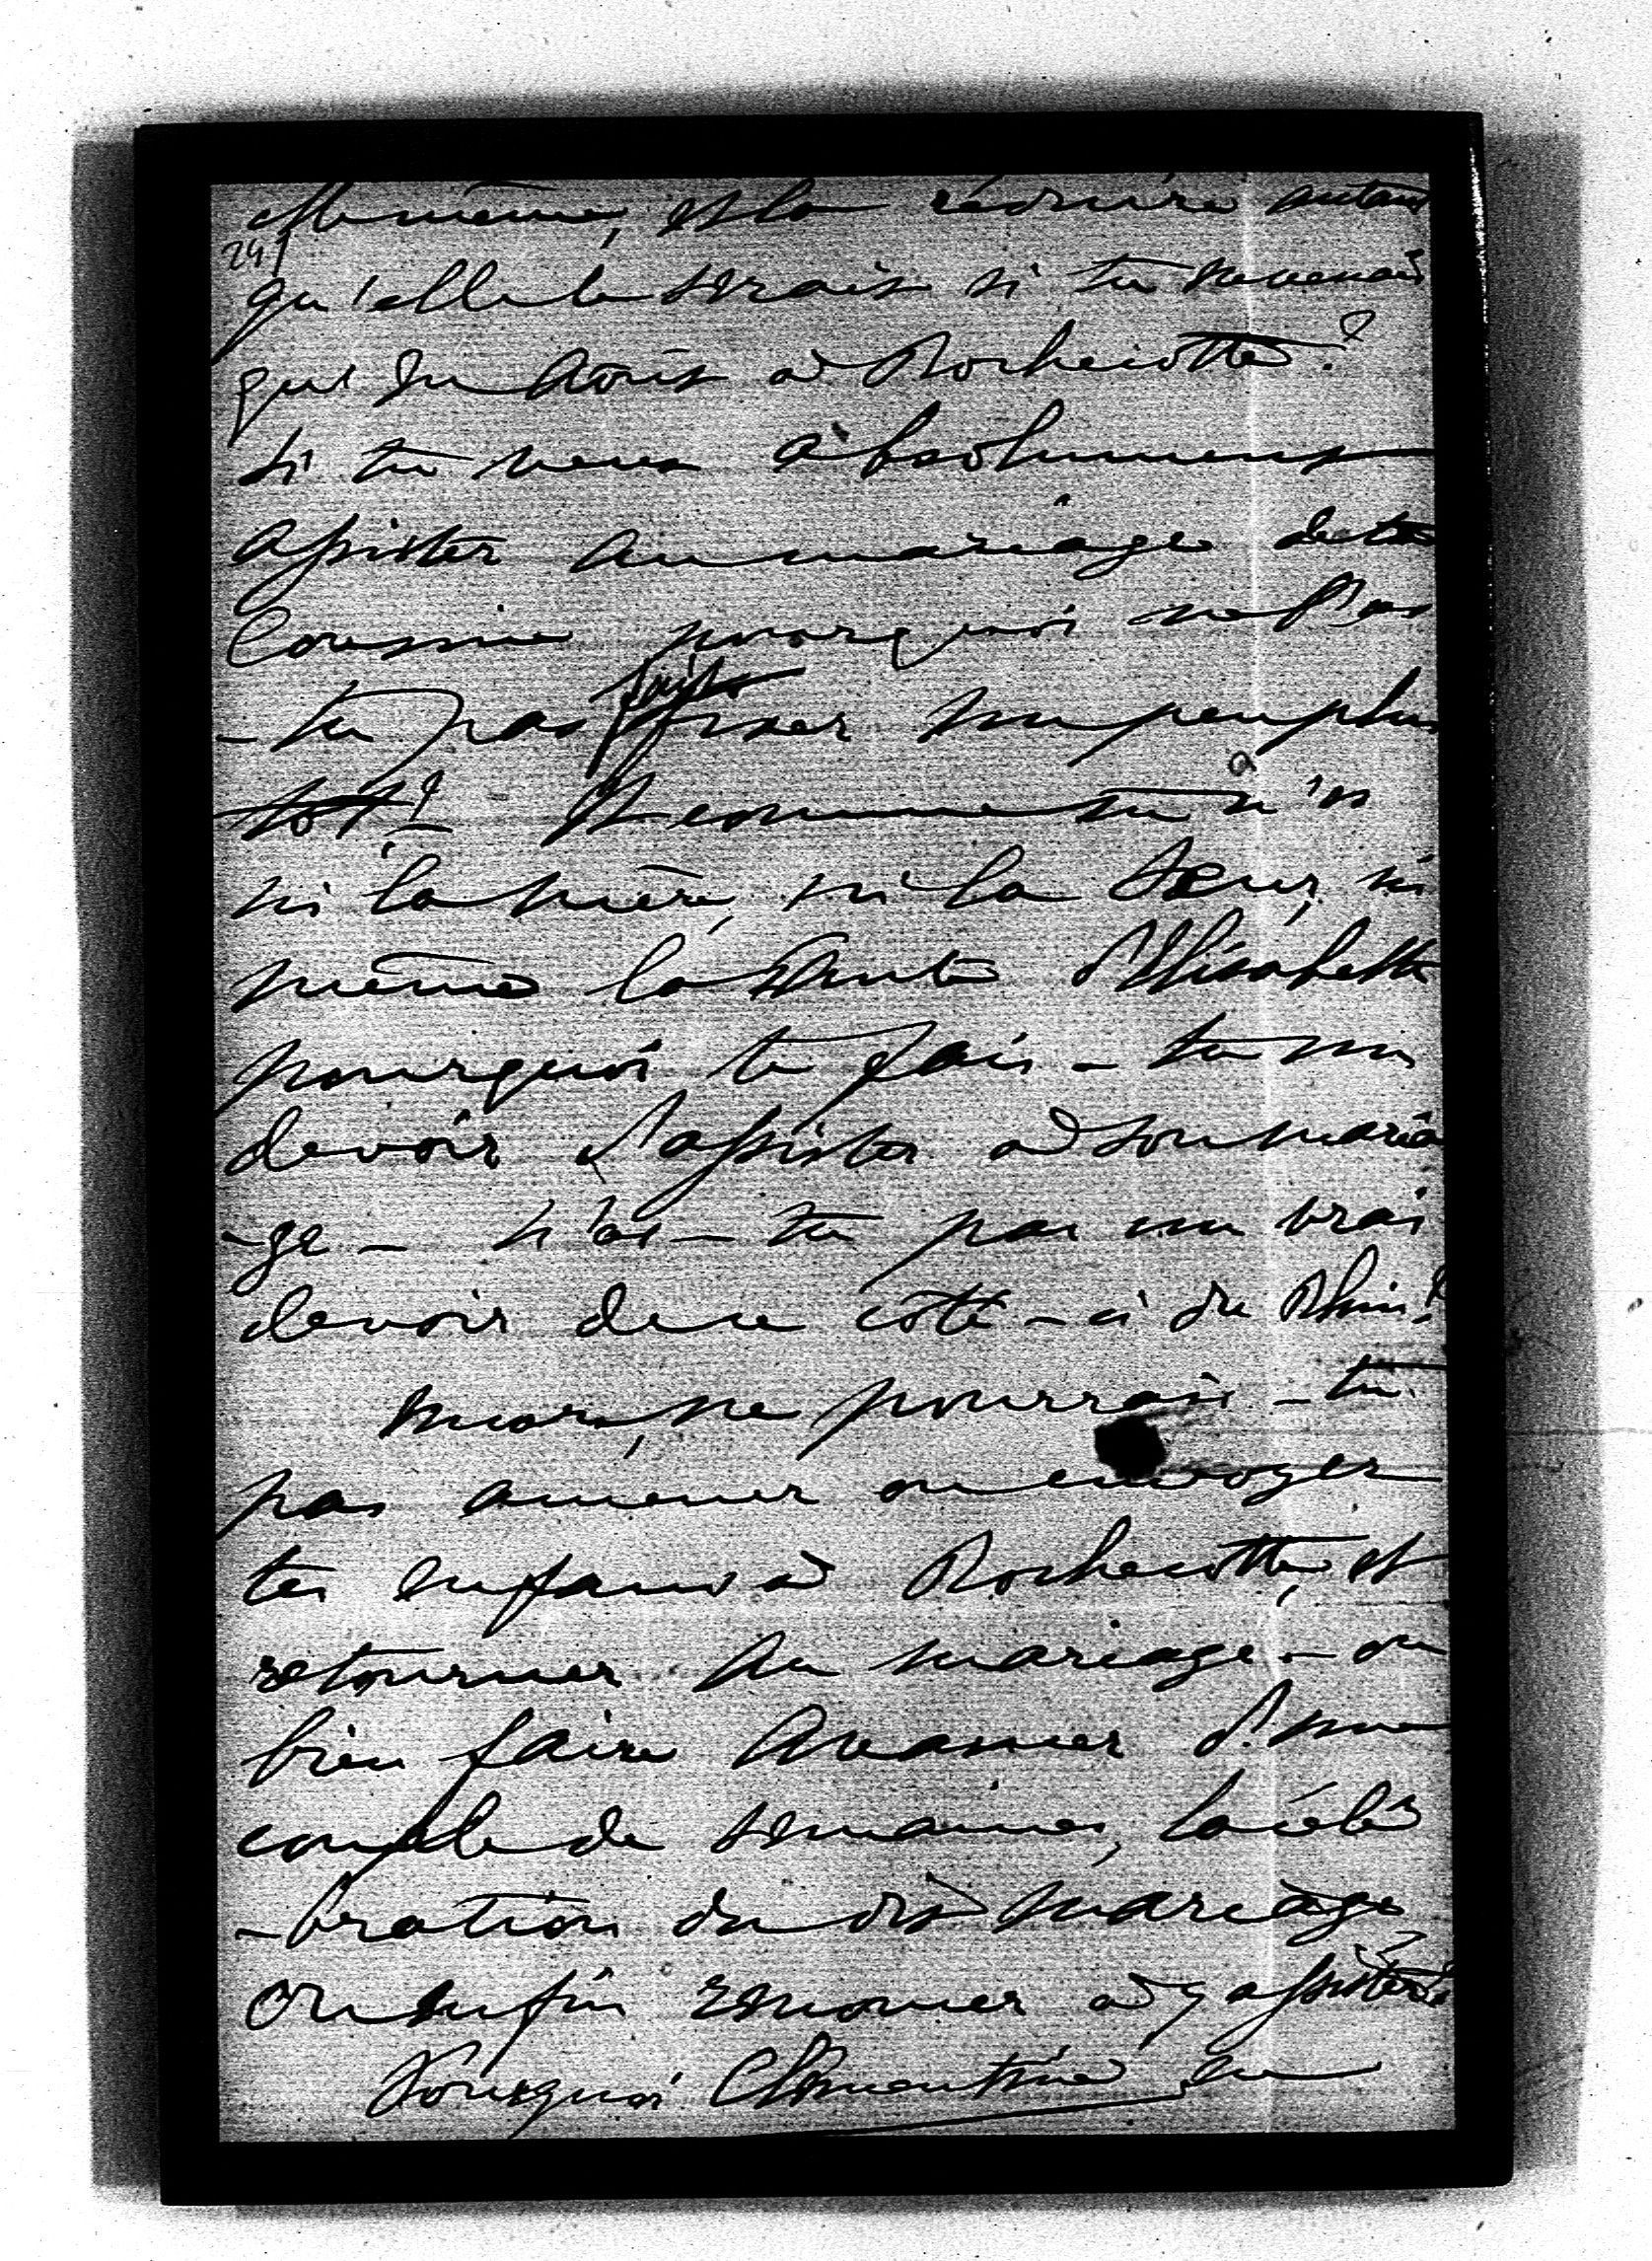 elle même, et la réduire autant
24)
qu'elle le serait si tu ne venais
qu'en Août à Rochecotte?
Si tu veux absolument
assister au mariage de ta
Cousine pourquoi ne l'as
-tu pas fait fixer un peu plus
tôt? Et comme tu n'es
ni la mère, ni la sœur, ni
même la tante d'Elisabeth
pourquoi te fais-tu un
devoir d'assister à son maria
-ge - n'as-tu pas un vrai
devoir de ce côté-ci du Rhin?
ne pourrais-tu
pas amener ou envoyer
tes enfans à Rochecotte, et
retourner au mariage - ou
bien faire avancer d'une
couple de semaines, la célé
-bration du dit mariage,
ou enfin renoncer à y assister?
Pourquoi Clémentine en